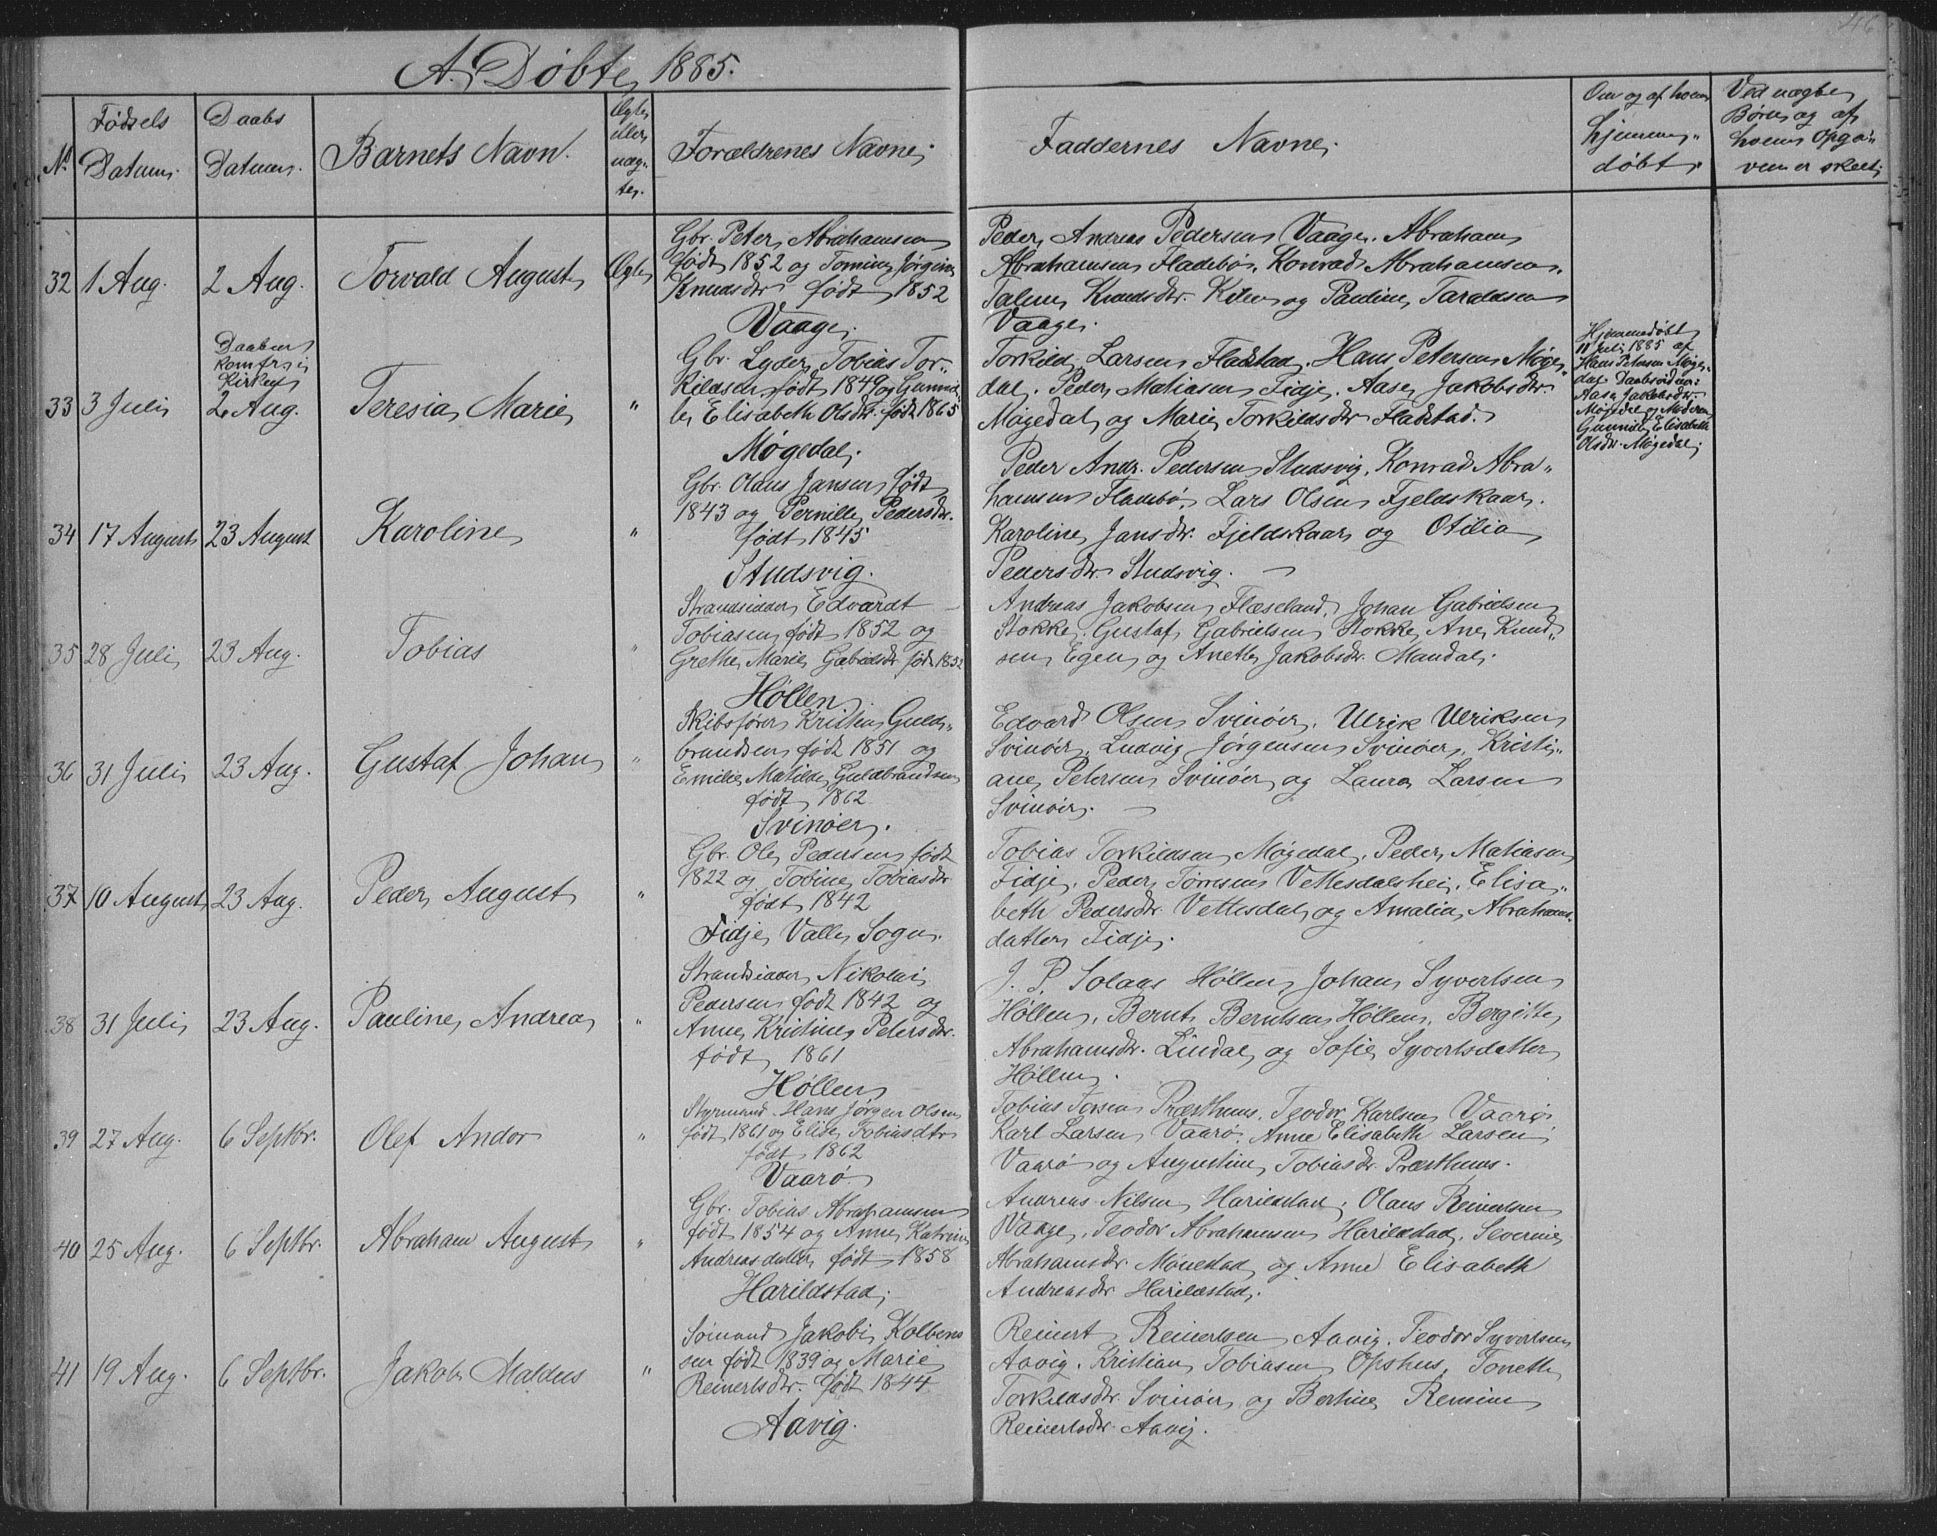 46
A. Døbte, 1885.
No
Fødsels Datum.
Daabs Datum.
Barnets Navn.
Ægte eller uægte.
Forældrenes Navne.
Faddernes Navne.
Om og af hvem hjemmedøbt.
Ved uægte Børn og af hvem Opgaven er skeet.
32
1 Aug.
2 Aug.
Torvald August
Ægte
Gbr. Peter Abrahamsen
født 1852 og Tomine Jørgine
Knudsdtr. født 1852
Vaage.
Peder Andreas Pedersen Vaage. Abraham
Abrahamsen Fladebø. Konrad Abrahamsen.
Knudsdtr. Kilen og Pauline Taraldsen
Vaage.
33
3 Juli
Daaben
komfr. i
Kirken
2 Aug.
Teresia Marie
"
Gbr. Lyder Tobias Tor-
kildsen født 1849 og Gunnil-
le Elisabeth Olsdtr. født 1865
Møgedal.
Torkild Larsen Fladstad. Hans Petersen Møge-
dal. Peder Matiasen Fidje. Aase Jakobsdtr.
Møgedal og Marie Torkildsdtr. Fladstad.
Hjemmedøbt
11 Juli 1885 af
Hans Petersen Møge-
dal.
Aase Jakobsdtr.
Møgedal og Moderen
Gunnille Elisabeth
Olsdtr. Møgedal.
34
17 August
23 August
Karoline
"
Gbr. Olaus Jansen født
1843 og Pernille Pedersdtr.
født 1845
Studsvig.
Peder Andr. Pedersen Studsvig. Konrad Abra-
hamsen Fladebø. Lars Olsen Fjeldskaar.
Karoline Jansdtr. Fjeldskaar og Otilia
Pedersdtr. Studsvig.
35
28 Juli
23 Aug.
Tobias
"
Strandsidder Edvardt
Tobiasen født 1852 og
Grethe Marie Gabrielsdtr. født 1852
Høllen.
Andreas Jakobsen Flæseland. Johan Gabrielsen
Stokke. Gustaf Gabrielsen Stokke. Ane Knud-
sen Egen og Anette Jakobsdtr. Mandal.
36
31 Juli
23 Aug.
Gustaf Johan
"
Skibsfører Kristen Guld-
brandsen født 1851 og
Emilie Matilde Guldbrandsen
født 1862
Svinøer.
Edvard Olsen Svinøer. Ulrik Ulriksen
Svinøer. Ludvig Jørgensen Svinøer. Kristi-
ane Petersen Svinøer og Laura Larsen
Svinøer.
37
10 August
23 Aug.
Peder August
"
Gbr. Ole Pedersen født
1822 og Tobine Tobiasdtr.
født 1842
Fidje, Valle Sogn.
Tobias Torkildsen Møgedal. Peder Matiasen
Fidje. Peder Tørresen Vettesdalshei. Elisa-
beth Pedersdtr. Vettesdal og Amalia Abrahams-
datter Fidje.
38
31 Juli
23 Aug.
Pauline Andrea
"
Strandsidder Nikolai
Pedersen født 1842 og
Anne Kristine Petersdtr.
født 1861
Høllen
J. P. Solaas Høllen, Johan Syvertsen
Høllen. Bernt Berntsen Høllen. Bergitte
Abrahamsdtr. Lindal og Sofie Syvertsdatter
Høllen.
39
27 Aug.
6 Septbr.
Olef Andor
"
Styrmand Hans Jørgen Olsen
født 1861 og Elise Tobiasdtr.
født 1862
Vaarø
Tobias Præsthuus. Teodor Karlsen Vaarø.
Karl Larsen Vaarø. Anne Elisabeth Larsen
Vaarø og Augustine Tobiasdtr. Præsthuus.
40
25 Aug.
6 Septbr.
Abraham August
"
Gbr. Tobias Abrahamsen
født 1854 og Anne Katrine
Andreasdatter født 1858
Harildstad.
Andreas Nilsen Harildstad. Olaus Reinertsen
Vaage. Teodor Abrahamsen Harildstad. Severine
Abrahamsdtr. Mønestad og Anne Elisabeth
Andreasdtr. Harildstad.
41
19 Aug.
6 Septbr.
Jakob Maldus
"
Sømand Jakob Kolbens-
sen født 1839 og Marie
Reinertsdtr. født 1844
Aavig.
Reinert Reinertsen Aavig. Teodor Syvertsen
Aavig. Kristian Tobiasen Opshus. Tonette
Torkildsdtr. Svinøer og Bertine
Reinertsdtr. Aavig.